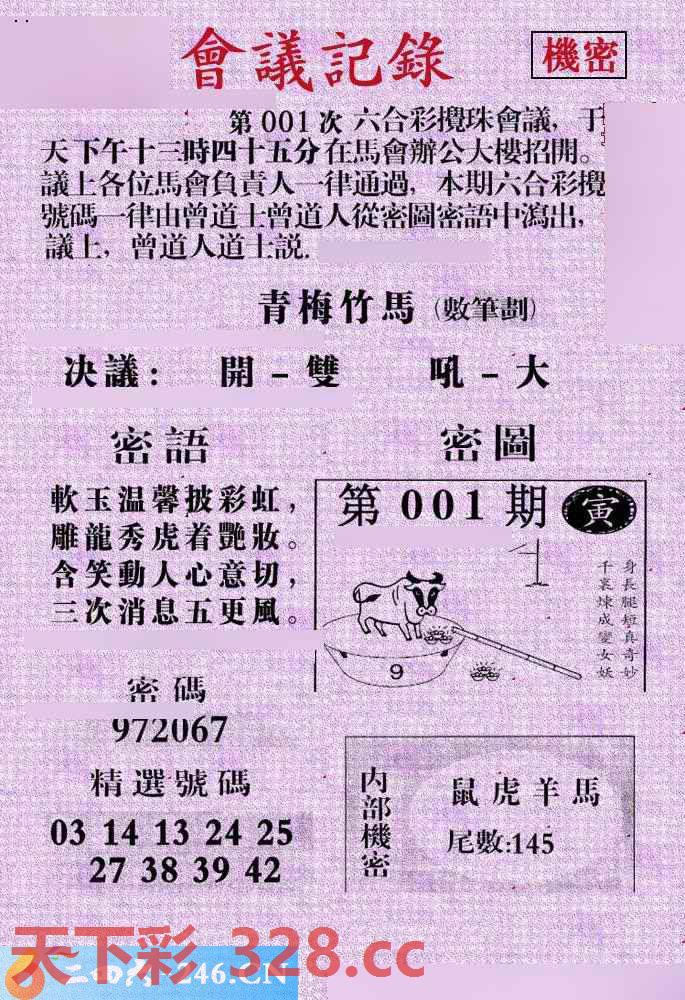 會議記錄
機密
第001次 六合彩攪珠會議，于
天下午十三時四十五分在馬會辦公大樓招開。
議上各位馬會負責人一律通過，本期六合彩攪
號碼一律由曾道士曾道人從密圖密語中瀉出，
議上，曾道人道士説.
青梅竹馬（數筆劃）
决議： 開－雙 吼－大
密語
軟玉温馨披彩虹，
雕龍秀虎着艷妝。
含笑動人心意切，
三次消息五更風。
密圖
第001期 寅
身長腿短真奇妙
千裏煉成變女妖
9
密碼
972067
精選號碼
03 14 13 24 25
27 38 39 42
内部機密
鼠虎羊馬
尾數:145
天下彩 328.cc
246.CN